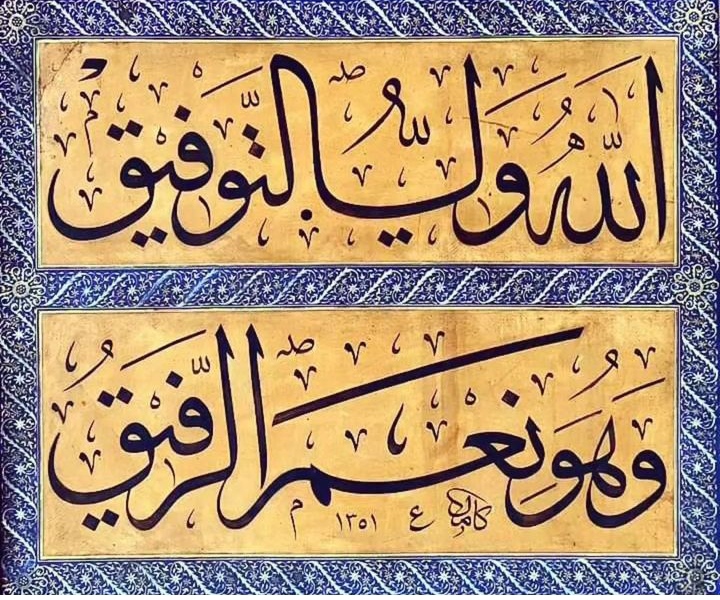 اللّٰهُ وَلِيُّ التَّوْفِيقِ
وَهُوَ نِعْمَ الرَّفِيقُ
كامل ١٣٥١